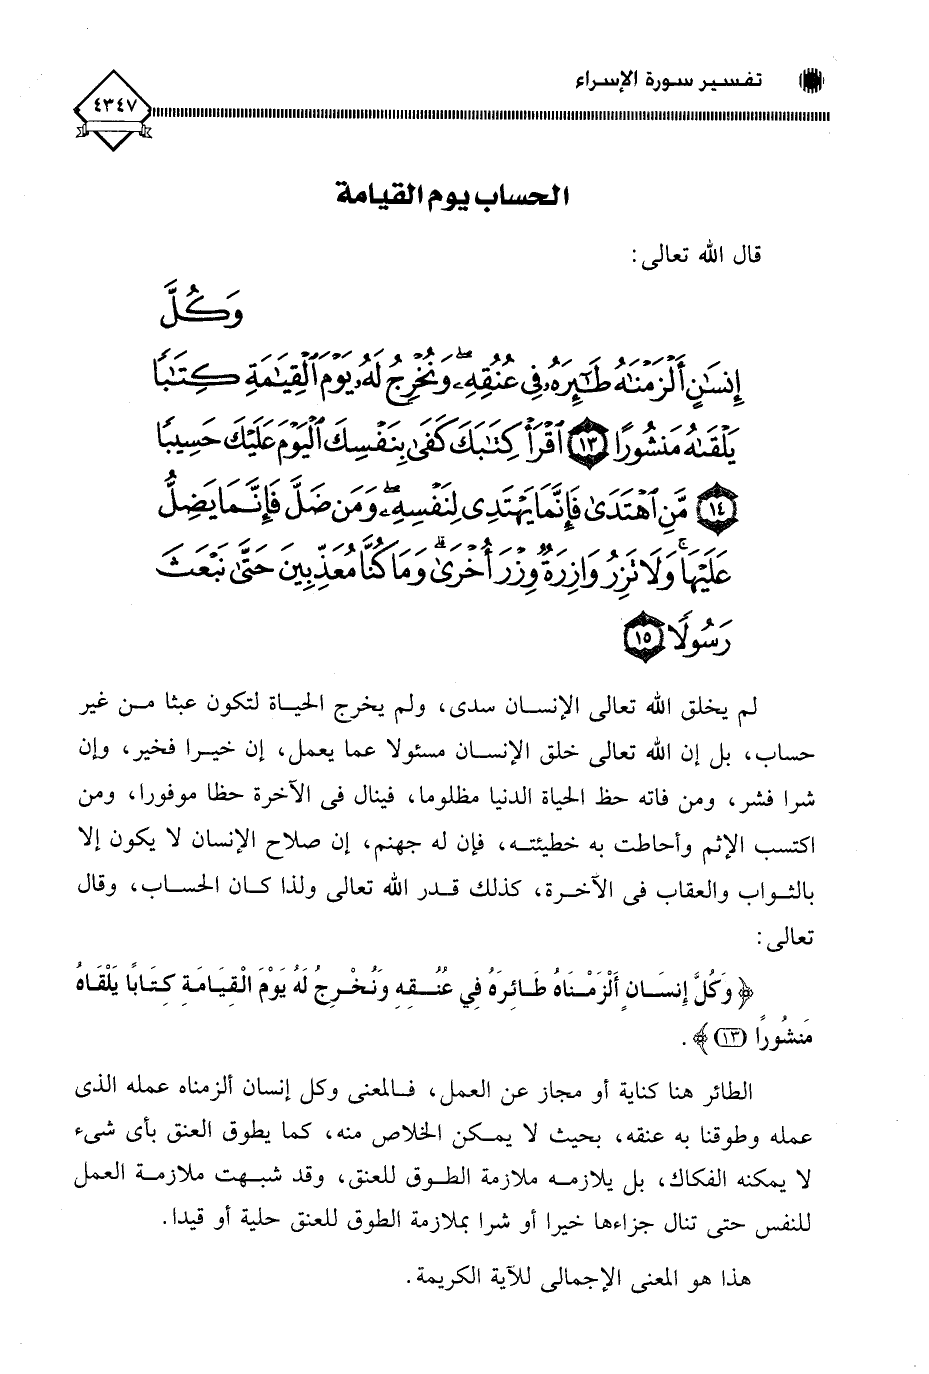 تفسير سورة الإسراء
٤٣٤٧
الحساب يوم القيامة
قال الله تعالى:
وَكُلَّ
إِنسَٰنٍ أَلْزَمْنَٰهُ طَٰٓئِرَهُۥ فِى عُنُقِهِۦۖ وَنُخْرِجُ لَهُۥ يَوْمَ ٱلْقِيَٰمَةِ كِتَٰبًا
يَلْقَىٰهُ مَنشُورًا ١٣ ٱقْرَأْ كِتَٰبَكَ كَفَىٰ بِنَفْسِكَ ٱلْيَوْمَ عَلَيْكَ حَسِيبًا
١٤ مَّنِ ٱهْتَدَىٰ فَإِنَّمَا يَهْتَدِى لِنَفْسِهِۦۖ وَمَن ضَلَّ فَإِنَّمَا يَضِلُّ
عَلَيْهَاۚ وَلَا تَزِرُ وَازِرَةٌ وِزْرَ أُخْرَىٰۗ وَمَا كُنَّا مُعَذِّبِينَ حَتَّىٰ نَبْعَثَ
رَسُولًا ١٥
لم يخلق الله تعالى الإنسان سدى، ولم يخرج الحياة لتكون عبثا من غير
حساب، بل إن الله تعالى خلق الإنسان مسئولا عما يعمل، إن خيرا فخير، وإن
شرا فشر، ومن فاته حظ الحياة الدنيا مظلوما، فينال فى الآخرة حظا موفورا، ومن
اكتسب الإثم وأحاطت به خطيئته، فإن له جهنم، إن صلاح الإنسان لا يكون إلا
بالثواب والعقاب فى الآخرة، كذلك قدر الله تعالى ولذا كان الحساب، وقال
تعالى:
﴿وَكُلَّ إِنسَانٍ أَلْزَمْنَاهُ طَائِرَهُ فِي عُنُقِهِ وَنُخْرِجُ لَهُ يَوْمَ الْقِيَامَةِ كِتَابًا يَلْقَاهُ
مَنشُورًا (١٣)﴾.
الطائر هنا كناية أو مجاز عن العمل، فالمعنى وكل إنسان ألزمناه عمله الذى
عمله وطوقنا به عنقه، بحيث لا يمكن الخلاص منه، كما يطوق العنق بأى شىء
لا يمكنه الفكاك، بل يلازمه ملازمة الطوق للعنق، وقد شبهت ملازمة العمل
للنفس حتى تنال جزاءها خيرا أو شرا بملازمة الطوق للعنق حلية أو قيدا.
هذا هو المعنى الإجمالى للآية الكريمة.